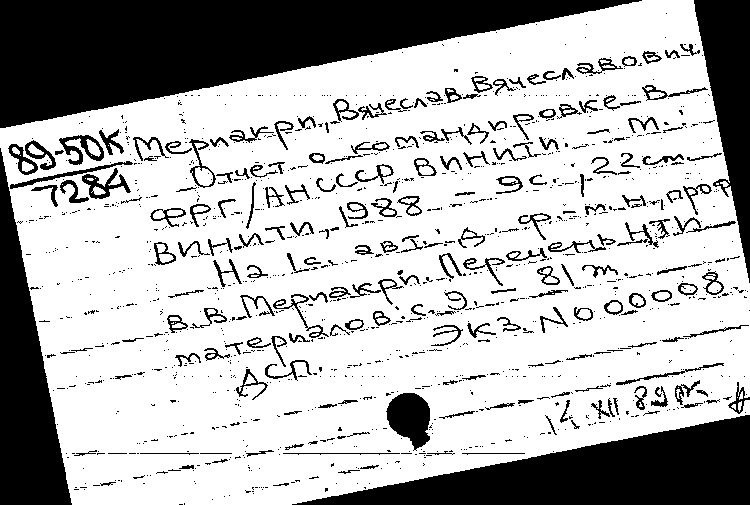 89-50К
7284
Мериакри, Вячеслав Вячеславович.
Отчет о командировке в
ФРГ / АН СССР, ВИНИТИ. - М.:
ВИНИТИ, 1988 - 9с.; 22см.
На 1с. авт.: д. ф.-м. н., проф
В. В. Мериакри. Перечень НТИ
материалов: с. 9. - 81 т.
ДСП. Экз. N000008.
14.XII.89